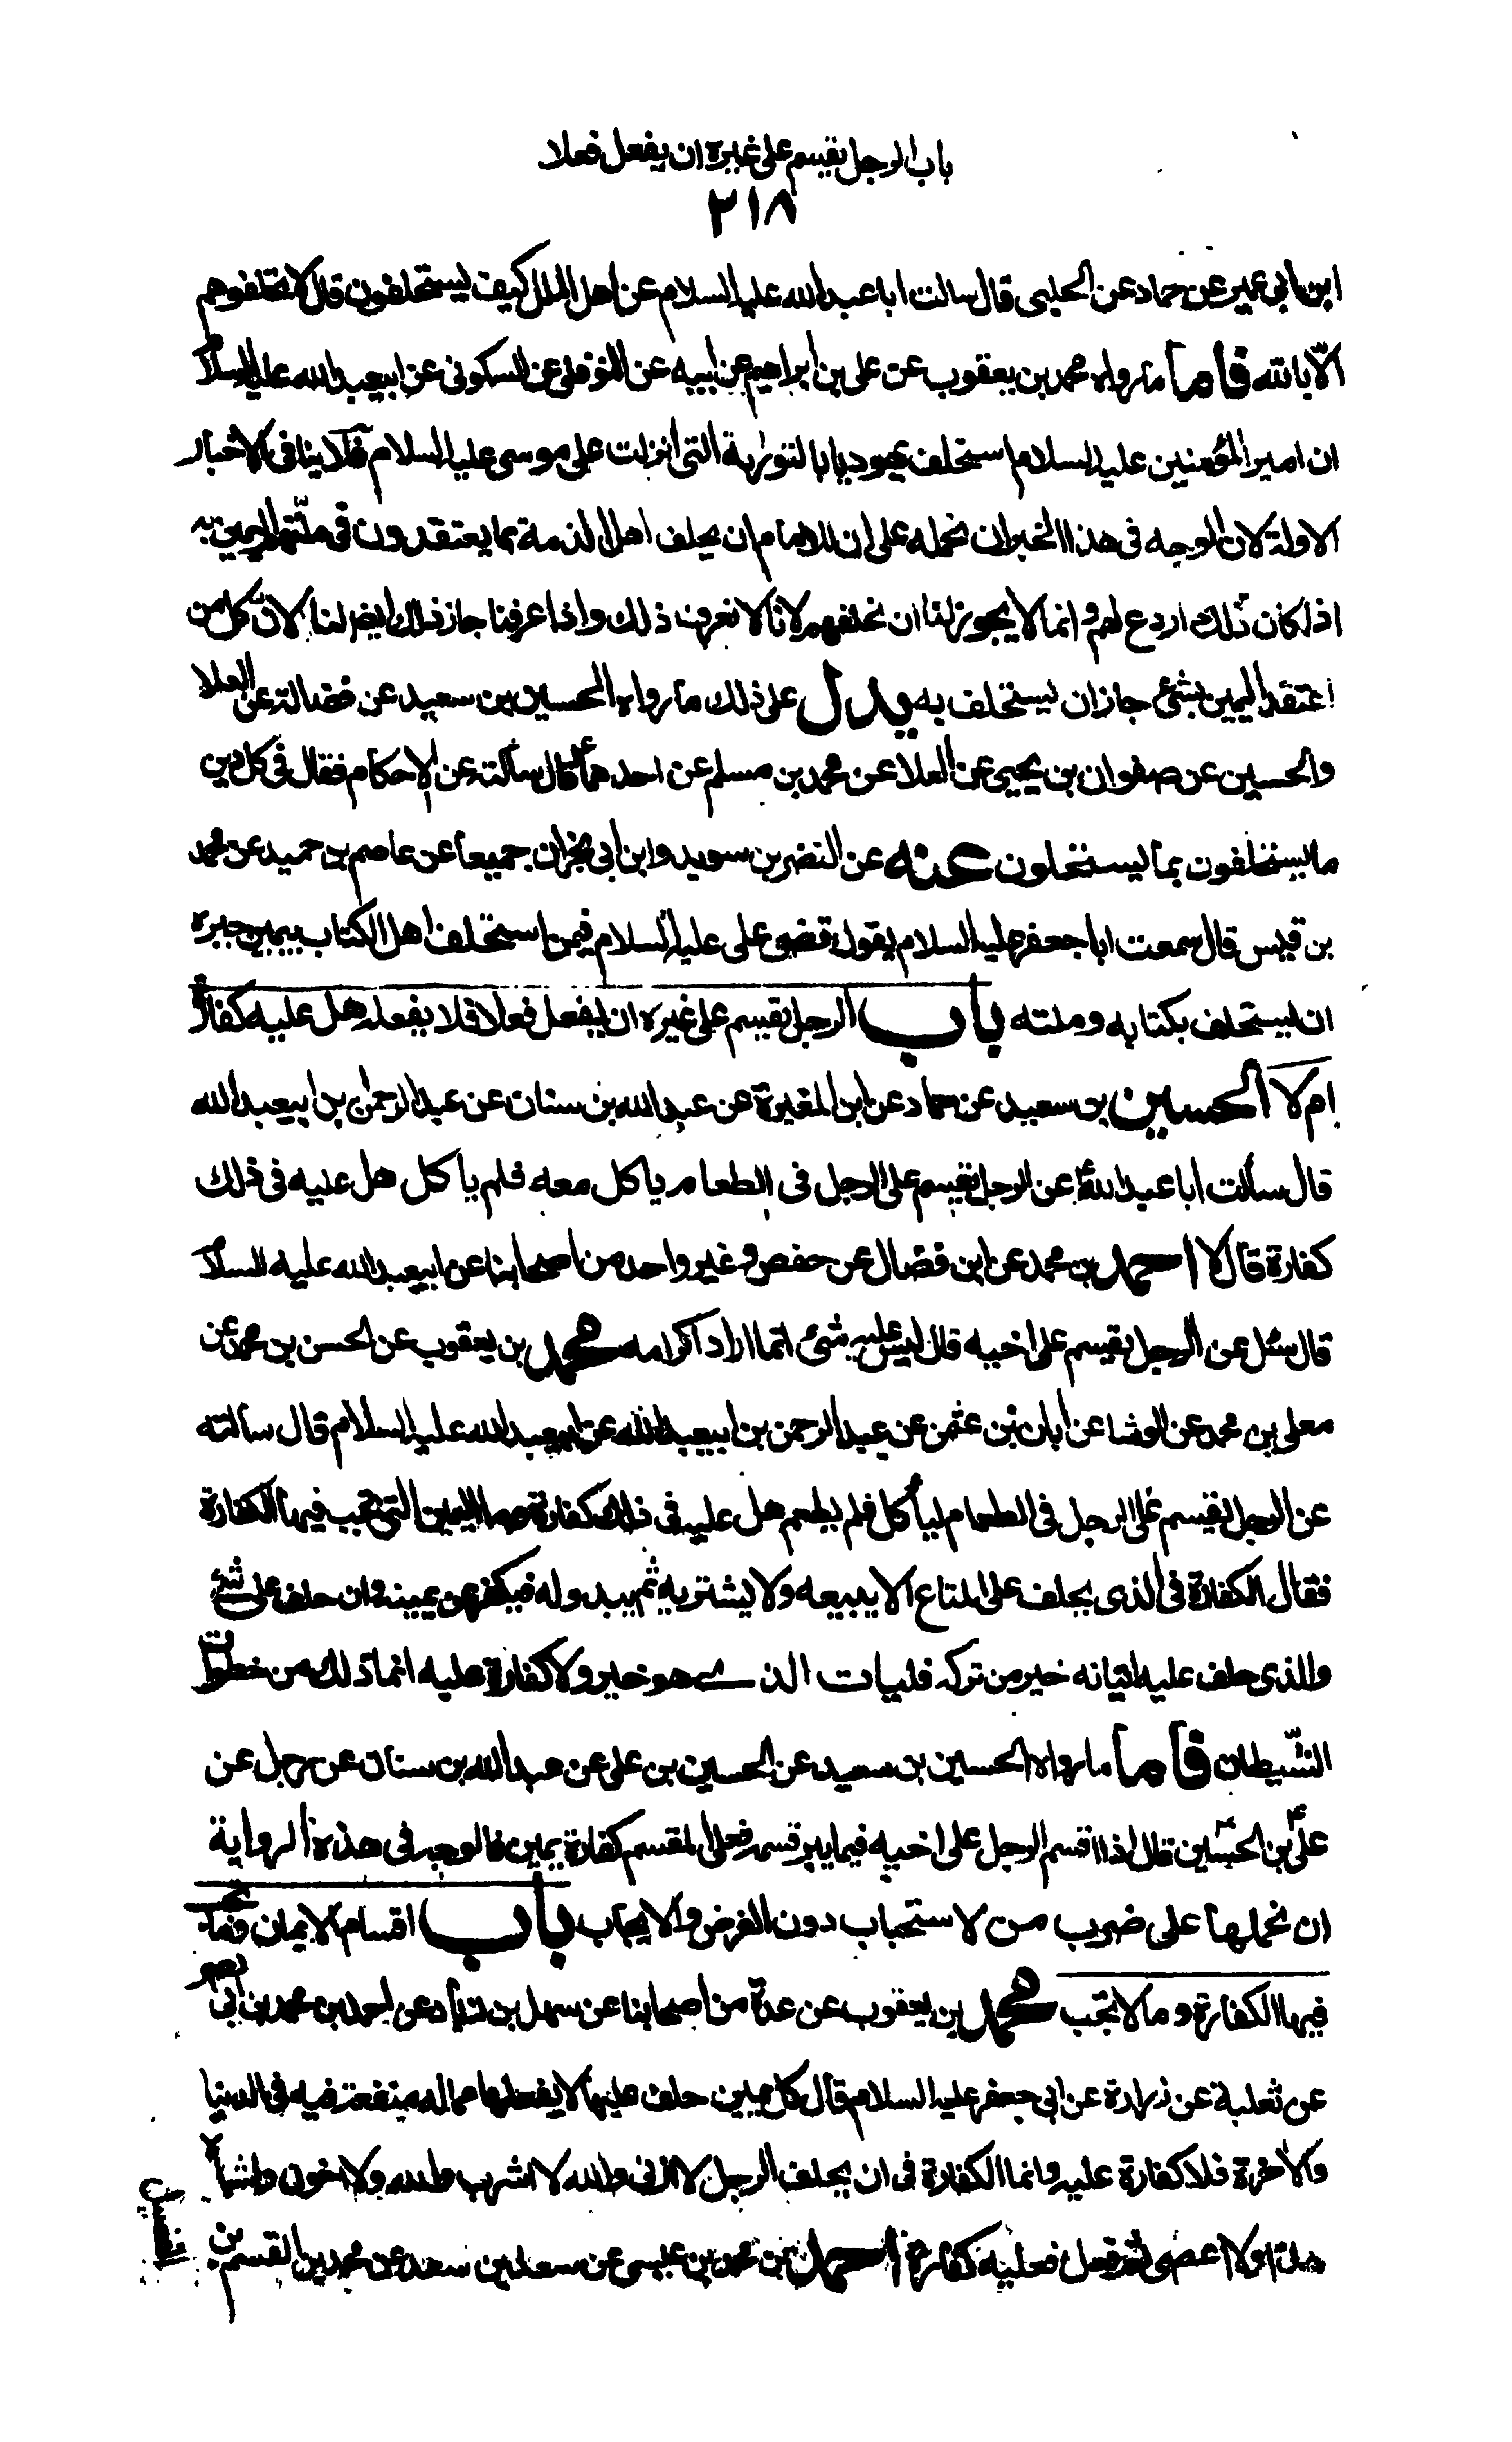 باب الرجل يقسم على غيره ان يفعل فعلا
٢١٨
ابن ابى عمير عن حماد عن الحلبى قال سالت ابا عبدالله عليه السلام عن اهل الملل كيف يستحلفون قال لا تحلفوهم
الّا بالله فاما ما رواه محمد بن يعقوب عن على بن ابراهيم عن ابيه عن النوفلى عن السكونى عن ابيعبد الله عليه السلام
ان امير المؤمنين عليه السلام استحلف يهوديا بالتورية التى انزلت على موسى عليه السلام فلا ينافى الاخبار
الاولة لان الوجه فى هذا الخبر ان نحمله على ان للامام ان يحلف اهل الذمة بما يعتقدون فى ملتهم اليمين به
اذا كان ذلك اردع لهم و انما لا يجوز لنا ان نحلفهم لانا لا نعرف ذلك واذا عرفنا جاز ذلك ايضا لنا لان كل من
اعتقد اليمين بشئ جاز ان يستحلف به يدل على ذلك ما رواه الحسين بن سعيد عن فضالة عن العلا
والحسين عن صفوان بن يحيى عن العلا عن محمد بن مسلم عن احدهما ع قال سألته عن الاحكام فقال فى كل دين
ما يستحلفون بما يستحلون عنه عن النضر بن سويد وابن ابى نجران جميعا عن عاصم بن حميد عن محمد
بن قيس قال سمعت ابا جعفر عليه السلام يقول قضى على عليه السلام فيمن استحلف اهل الكتاب بيمين صبره
ان يستحلف بكتابه وملته باب الرجل يقسم على غيره ان يفعل فعلا فلا يفعله هل عليه كفارة
ام لا الحسين بن سعيد عن حماد عن ابن المغيرة عن عبدالله بن سنان عن عبدالرحمن بن ابيعبدالله
قال سألت ابا عبدالله ع عن الرجل يقسم على الرجل فى الطعام ياكل معه فلم ياكل هل عليه فى ذلك
كفارة قال لا احمد بن محمد عن ابن فضال عن حفص و غير واحد من اصحابنا عن ابيعبد الله عليه السلام
قال سئل عن الرجل يقسم على اخيه قال ليس عليه شئ انما اراد اكرامه محمد بن يعقوب عن الحسن بن محمد عن
معلى بن محمد عن الوشا عن ابان بن عثمن عن عبد الرحمن بن ابيعبدالله عن ابيعبدالله عليه السلام قال سألته
عن الرجل يقسم على الرجل فى الطعام ليأكل فلم يطعم هل عليه فى ذلك كفارة وما اليمين التى تجب فيها الكفارة
فقال الكفارة فى الذى يحلف على المتاع الا يبيعه ولا يشتريه ثم يبدو له فيكفر عن يمينه وان حلف على شئ
والذى حلف عليه اتيانه خير من تركه فليات الذى هو خير ولا كفارة عليه انما ذلك من خطوات
الشّيطان فاما ما رواه الحسين بن سعيد عن الحسين بن على عن عبدالله بن سنان عن رجل عن
على بن الحسين قال اذا اقسم الرجل على اخيه فيما يبر قسمه فعلى المقسم كفارة يمين فالوجه فى هذه الرواية
ان نحملها على ضرب من الاستحباب دون الفرض والايجاب باب اقسام الايمان وما تجب
فيها الكفارة وما لا تجب محمد بن يعقوب عن عدة من اصحابنا عن سهل بن زياد عن احمد بن محمد بن ابى نصر
عن ثعلبة عن زرارة عن ابى جعفر عليه السلام قال كل يمين حلف عليها لا يفعلها مما له منفعة فيه فى الدنيا
والاخرة فلا كفارة عليه وانما الكفارة فى ان يحلف الرجل لا ازنى والله لا اشرب والله ولا اخون واشباه
هذا ولا اعصى ثم فعل فعليه كفارة احمد بن محمد بن عيسى عن سعد بن سعد عن محمد بن القسم بن